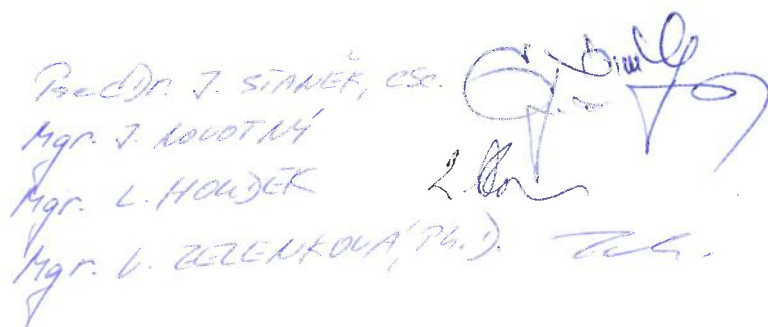 PaedDr. J. STANĚK, CSc.
Mgr. J. NOVOTNÝ
Mgr. L. HOUDEK
Mgr. V. ZELENKOVÁ, Ph.D.